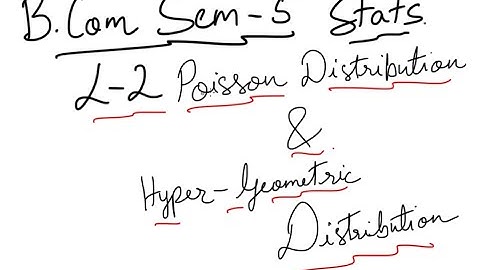 B.Com Sem-5 Stats.
L-2 Poisson Distribution
&
Hyper-Geometric
Distribution